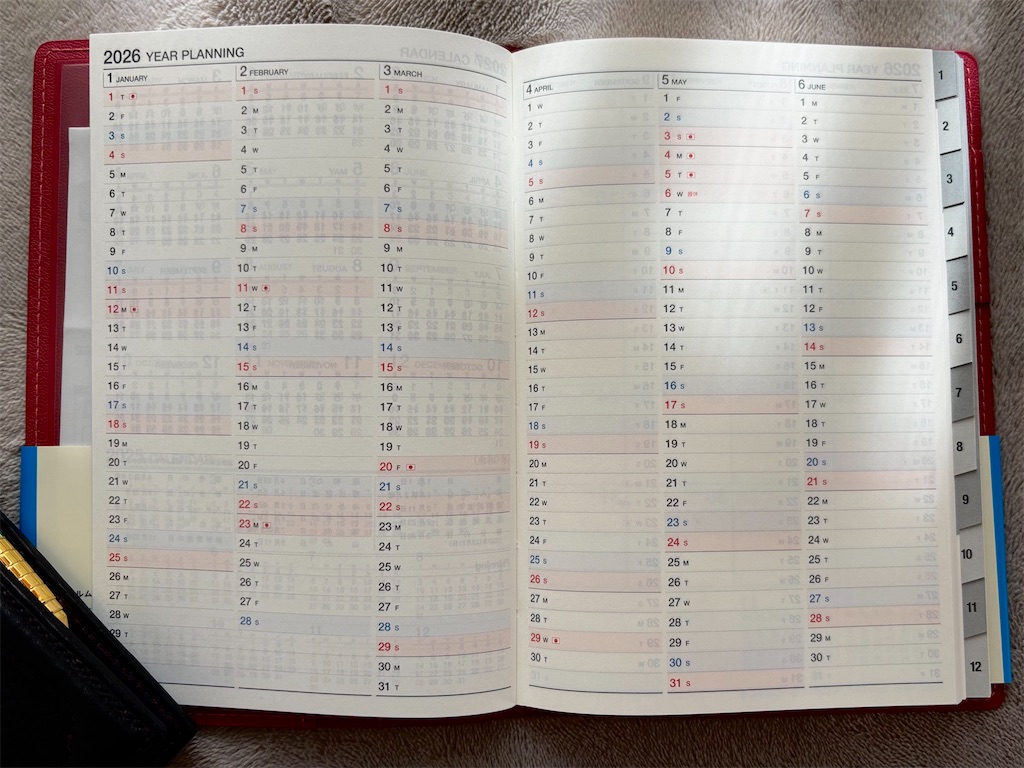 2026 YEAR PLANNING
1 JANUARY
1 T
2 F
3 S
4 S
5 M
6 T
7 W
8 T
9 F
10 S
11 S
12 M
13 T
14 W
15 T
16 F
17 S
18 S
19 M
20 T
21 W
22 T
23 F
24 S
25 S
26 M
27 T
28 W
29 T
2 FEBRUARY
1 S
2 M
3 T
4 W
5 T
6 F
7 S
8 S
9 M
10 T
11 W
12 T
13 F
14 S
15 S
16 M
17 T
18 W
19 T
20 F
21 S
22 S
23 M
24 T
25 W
26 T
27 F
28 S
3 MARCH
1 S
2 M
3 T
4 W
5 T
6 F
7 S
8 S
9 M
10 T
11 W
12 T
13 F
14 S
15 S
16 M
17 T
18 W
19 T
20 F
21 S
22 S
23 M
24 T
25 W
26 T
27 F
28 S
29 S
30 M
31 T
4 APRIL
1 W
2 T
3 F
4 S
5 S
6 M
7 T
8 W
9 T
10 F
11 S
12 S
13 M
14 T
15 W
16 T
17 F
18 S
19 S
20 M
21 T
22 W
23 T
24 F
25 S
26 S
27 M
28 T
29 W
30 T
5 MAY
1 F
2 S
3 S
4 M
5 T
6 W
7 T
8 F
9 S
10 S
11 M
12 T
13 W
14 T
15 F
16 S
17 S
18 M
19 T
20 W
21 T
22 F
23 S
24 S
25 M
26 T
27 W
28 T
29 F
30 S
31 S
6 JUNE
1 M
2 T
3 W
4 T
5 F
6 S
7 S
8 M
9 T
10 W
11 T
12 F
13 S
14 S
15 M
16 T
17 W
18 T
19 F
20 S
21 S
22 M
23 T
24 W
25 T
26 F
27 S
28 S
29 M
30 T
1
2
3
4
5
6
7
8
9
10
11
12
ルム